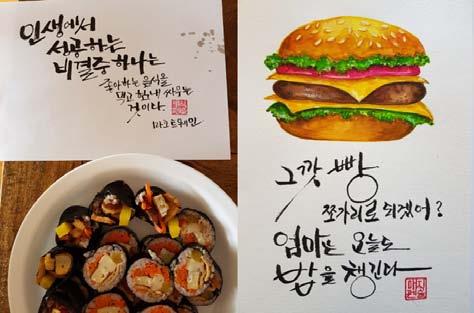 인생에서
성공하는
비결중 하나는
좋아하는 음식을
먹고 힘내 싸우는
것이다
마크 트웨인
그깟 빵
쪼가리로 되겠어?
엄마는 오늘도
밥을 챙긴다